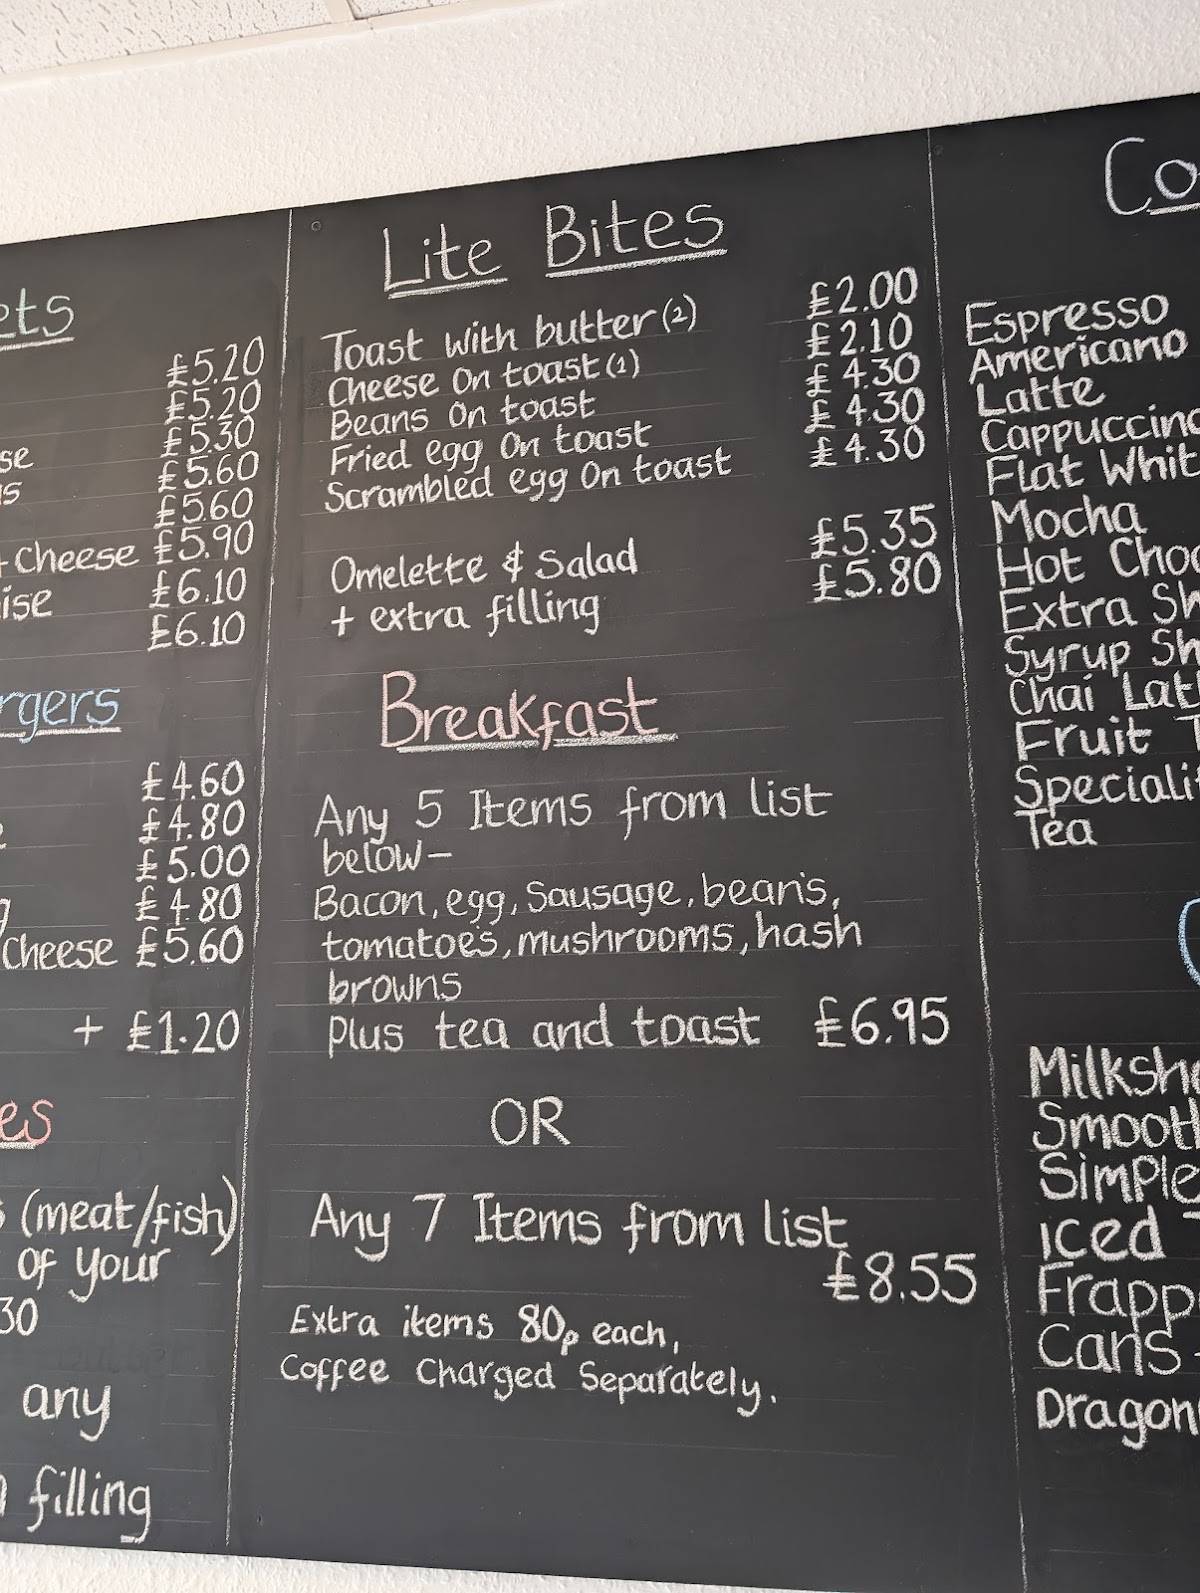 ets
£5.20
£5.20
£5.30
se £5.60
s £5.60
+ Cheese £5.90
ise £6.10
£6.10
rgers
£4.60
£4.80
£5.00
£4.80
Cheese £5.60
+ £1.20
es
(meat/fish)
of your
30
any
filling
Lite Bites
Toast with butter (2) £2.00
Cheese on toast (1) £2.10
Beans on toast £4.30
Fried egg on toast £4.30
Scrambled egg on toast £4.30
Omelette & Salad £5.35
+ extra filling £5.80
Breakfast
Any 5 Items from list
below-
Bacon, egg, Sausage, beans,
tomatoes, mushrooms, hash
browns
plus tea and toast £6.95
OR
Any 7 Items from list
£8.55
Extra items 80p each,
Coffee Charged Separately.
Co
Espresso
Americano
Latte
Cappuccino
Flat Whit
Mocha
Hot Choc
Extra Sh
Syrup Sh
Chai Latt
Fruit T
Specialit
Tea
Milksha
Smooth
Simple
iced T
Frapp
Cans -
Dragon